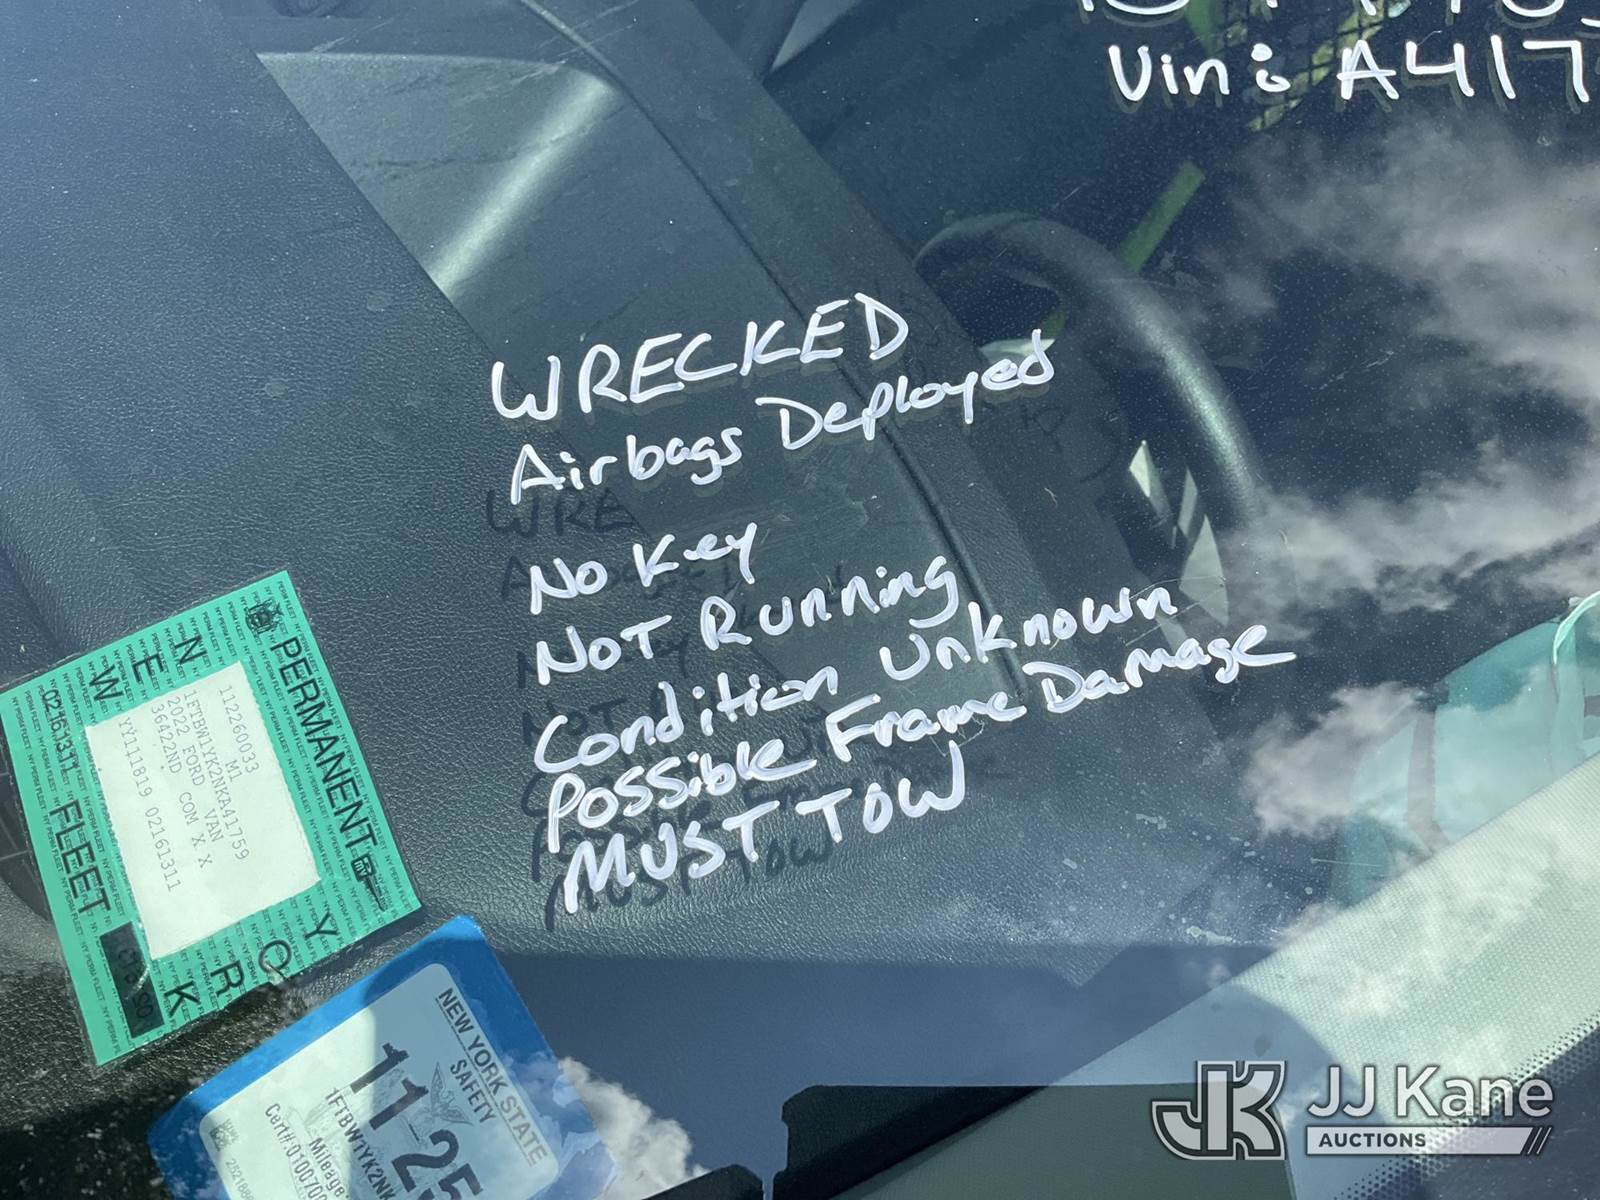 Vin: A417
WRECKED
Airbags Deployed
No Key
NOT Running
Condition Unknown
Possible Frame Damage
MUST TOW
NEW YORK
PERMANENT
FLEET
11260033 M1
1FTBW1YK2NKA41759
2022 FORD VAN
36422ND COM X X
YY111819 02161311
02161311
NEW YORK STATE
SAFETY
11 25
1FTBW1YK2NK
Mileage
Cert#:0100700
JJ Kane
AUCTIONS